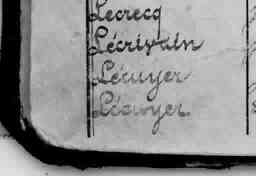 Lecrecq
Lécrivain
Lécuyer
Lécuyer